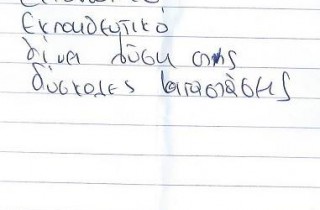 εκπαιδευτικό
δίνει λύση στις
δύσκολες καταστάσεις